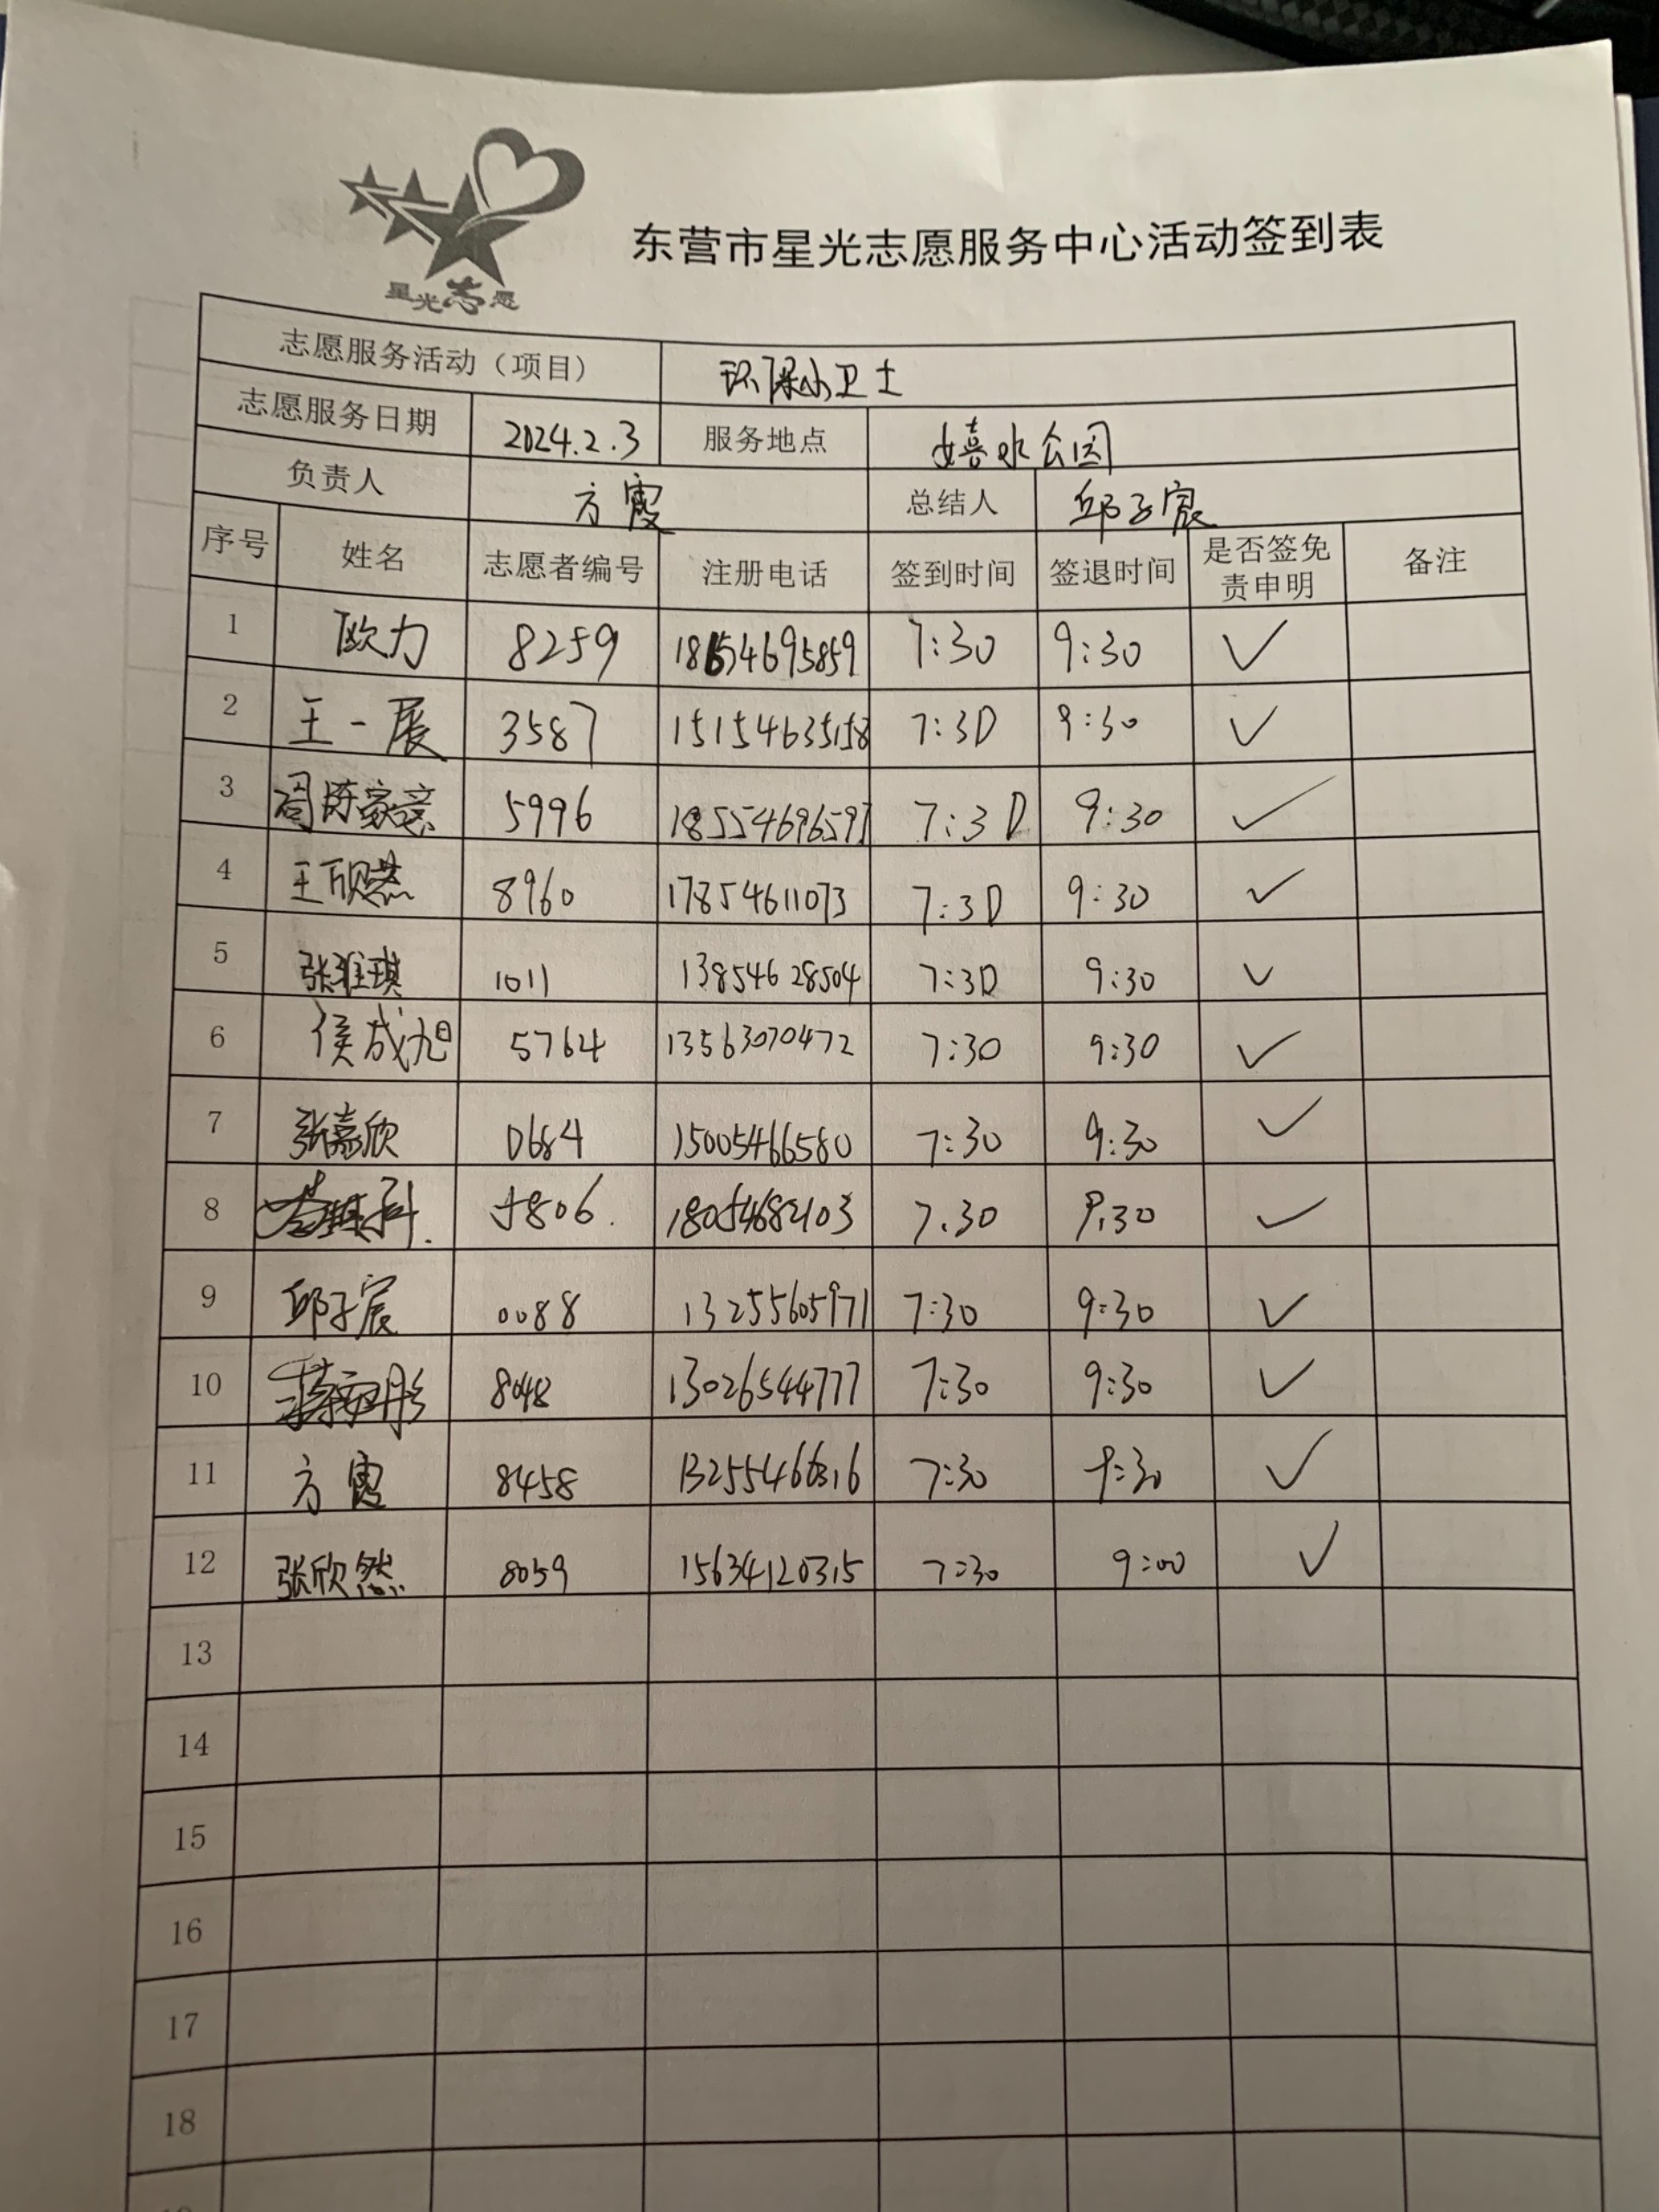 星光志愿
东营市星光志愿服务中心活动签到表
志愿服务活动（项目） 环保小卫士
志愿服务日期 2024.2.3 服务地点 嬉水公园
负责人 方霞 总结人 邱子宸
序号 姓名 志愿者编号 注册电话 签到时间 签退时间 是否签免责申明 备注
1 欧力 8259 18654695859 7:30 9:30 ✓
2 王一展 3587 15154635158 7:30 9:30 ✓
3 周陈家意 5996 18554696597 7:30 9:30 ✓
4 王 8960 17854611073 7:30 9:30 ✓
5 张雅琪 1011 13854628504 7:30 9:30 ✓
6 侯成旭 5764 13563070472 7:30 9:30 ✓
7 张嘉欣 0684 15005466580 7:30 9:30 ✓
8 5806. 18054682103 7.30 9.30 ✓
9 邱子宸 0088 13255605971 7:30 9:30 ✓
10 8048 13026544777 7:30 9:30 ✓
11 方霞 8458 7:30 9:30 ✓
12 张欣然 8059 15634120315 7:30 9:00 ✓
13
14
15
16
17
18